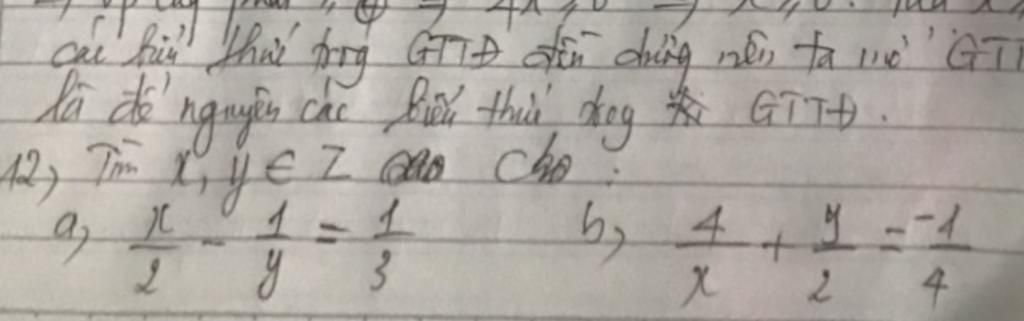 4x ≥ 0
các biểu thức trong GTTĐ đều dương nên ta mở GTT
là để nguyên các biểu thức trog GTTĐ.
12, Tìm x, y ∈ Z sao cho :
a, x/2 - 1/y = 1/3 b, 4/x + y/2 = -1/4